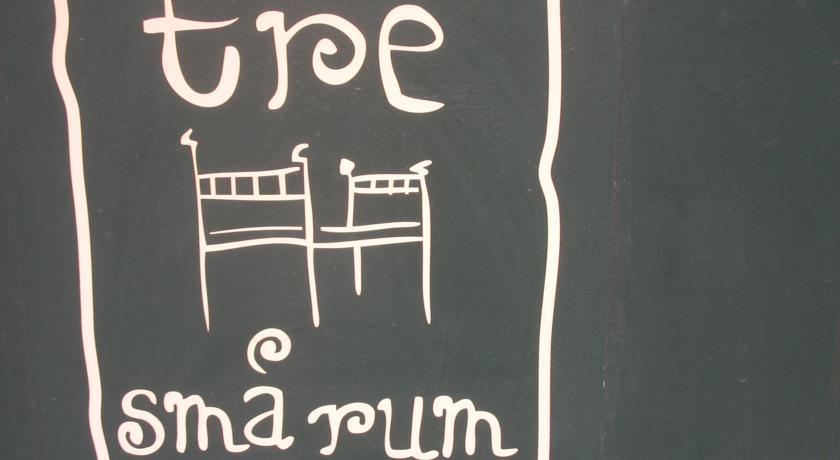 tre
små rum